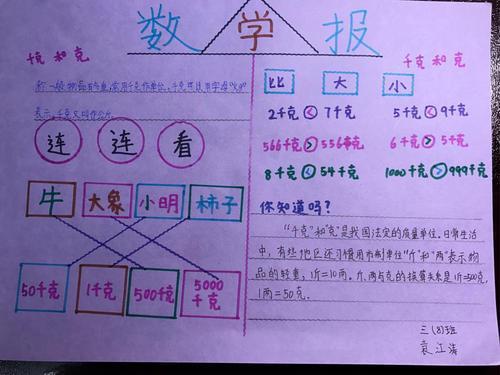 数学报
千克 和 克
千克 和 克
称一般物品有多重,常用千克作单位。千克可以用字母"kg"
表示,千克又叫作公斤。
连 连 看
牛 大象 小明 柿子
50千克 1千克 500千克 5000千克
比 大 小
2千克 < 7千克 5千克 < 9千克
566千克 > 556千克 6千克 > 5千克
8千克 < 54千克 1000千克 > 999千克
你知道吗?
"千克"和"克"是我国法定的质量单位。日常生活
中,有些地区还习惯用市制单位"斤"和"两"表示物
品的轻重,1斤=10两。斤、两与克的换算关系是1斤=500克,
1两=50克。
三(8)班
袁江涛